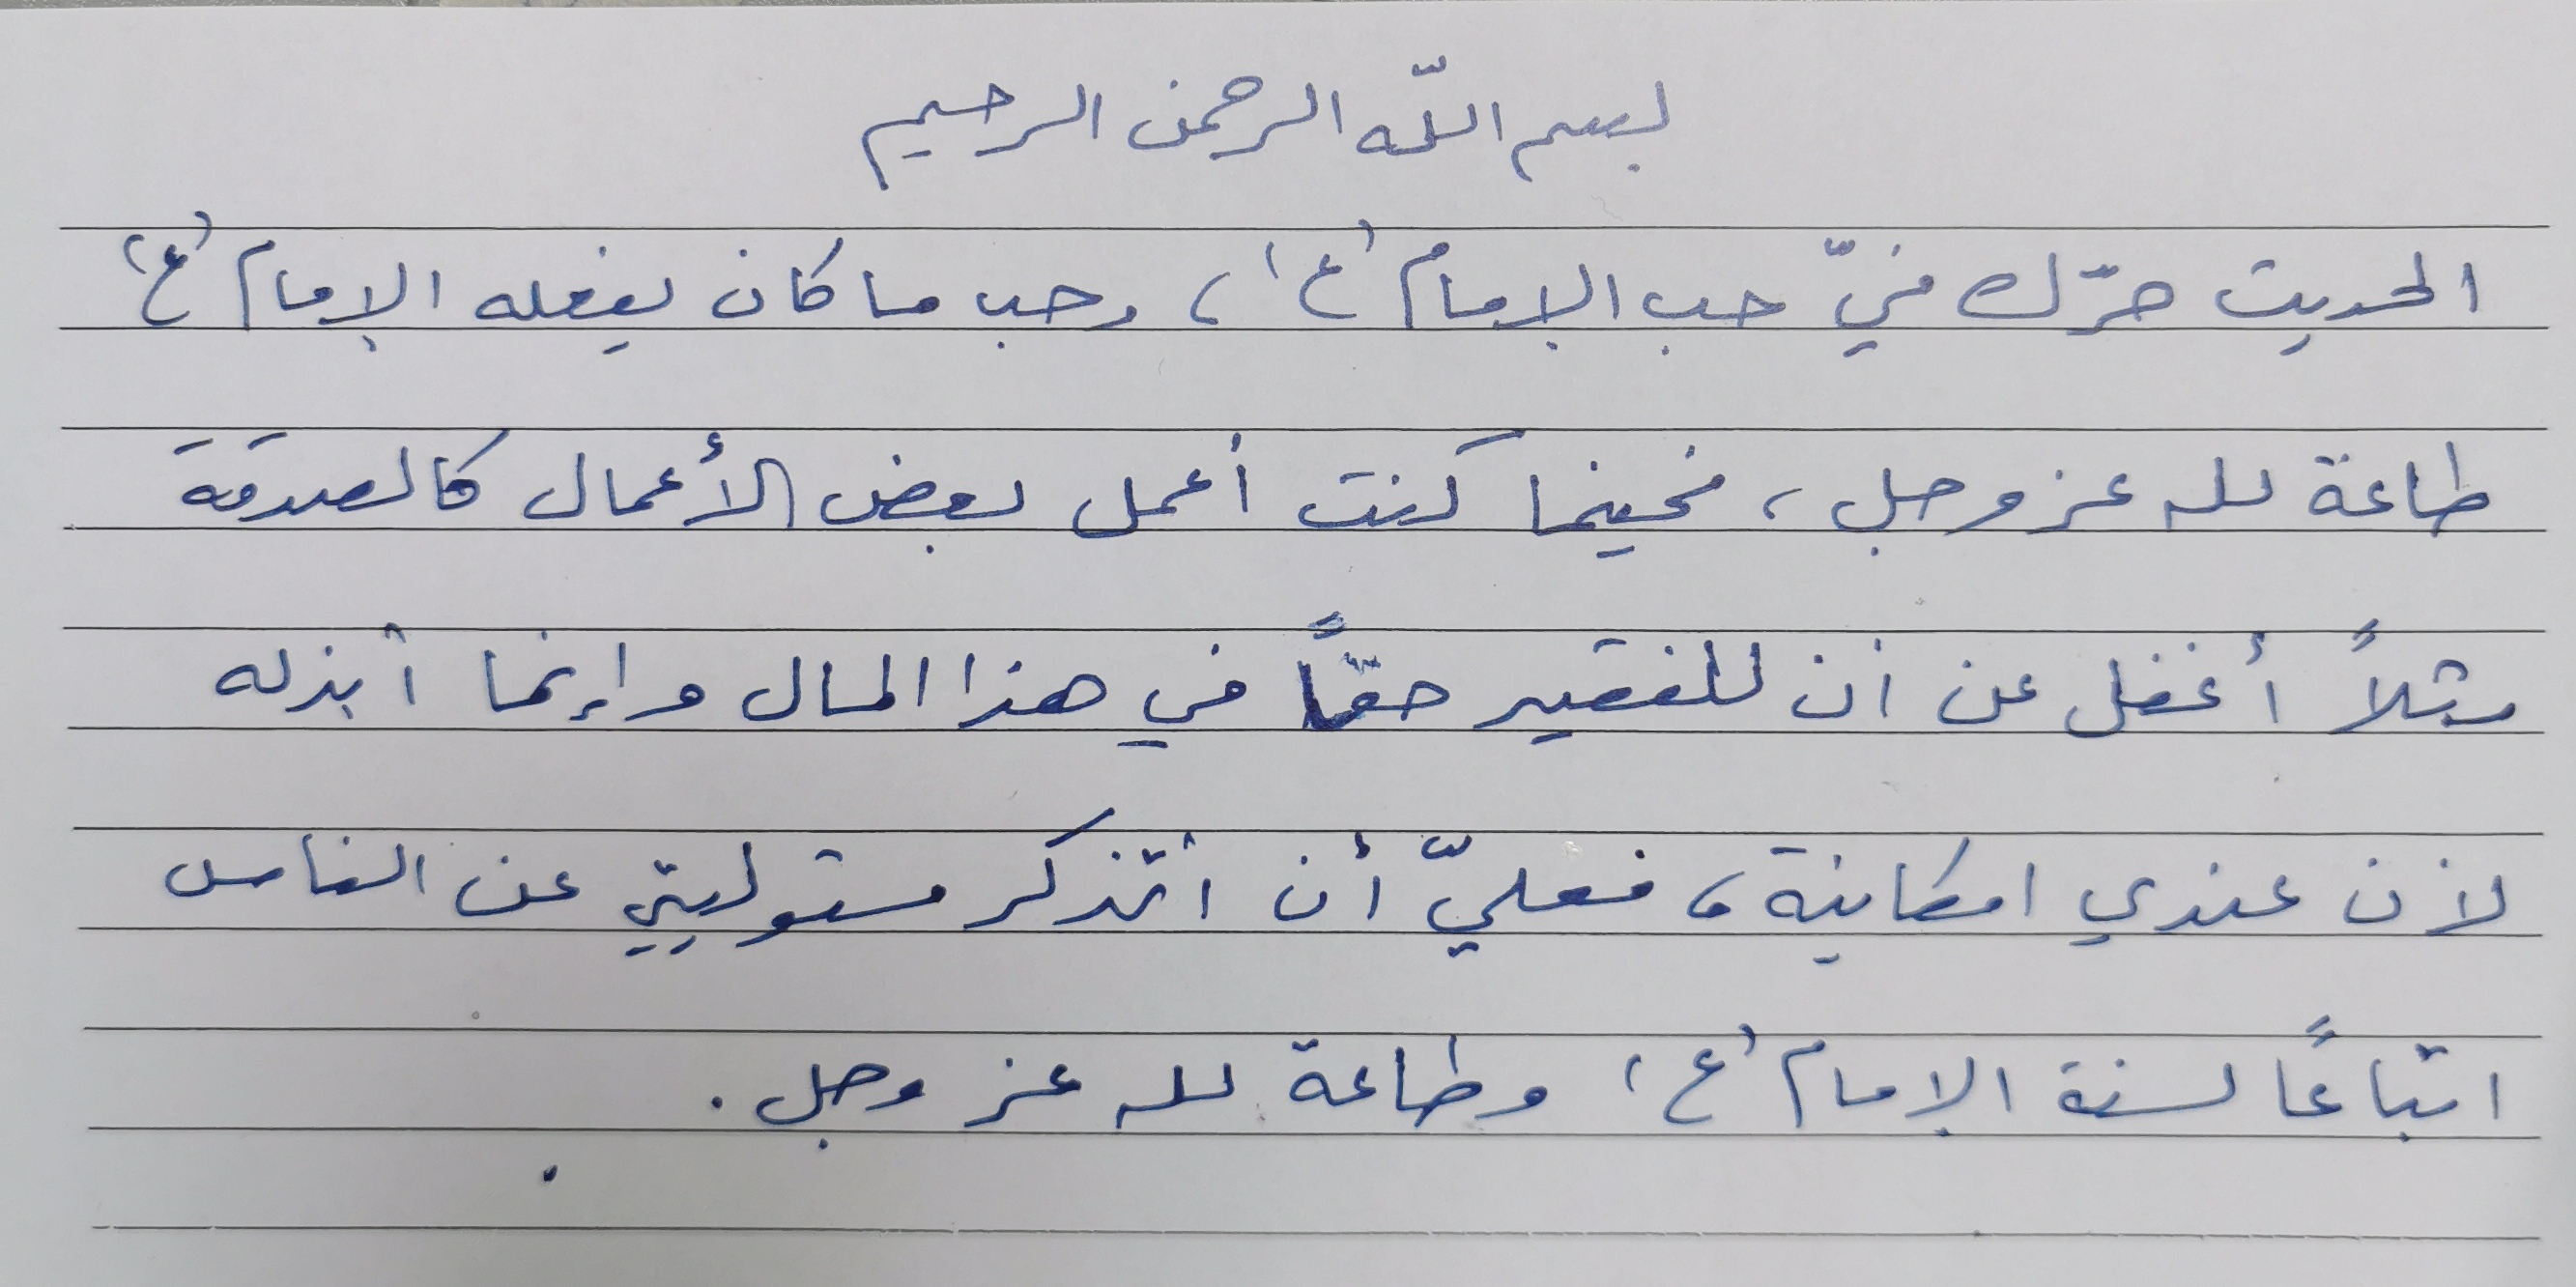 بسم اللّه الرحمن الرحيم
الحديث حرّك فيّ حب الإمام (ع)، وحب ما كان يفعله الإمام (ع)
طاعة لله عز وجل، فحينما كنت أعمل بعض الأعمال كالصدقة
مثلاً أغفل عن أن للفقير حقّاً في هذا المال وإنما أبذله
لأن عندي امكانية، فعليّ أن أتذكر مسئوليتي عن الناس
اتّباعاً لسنة الإمام (ع) وطاعة لله عز وجل.